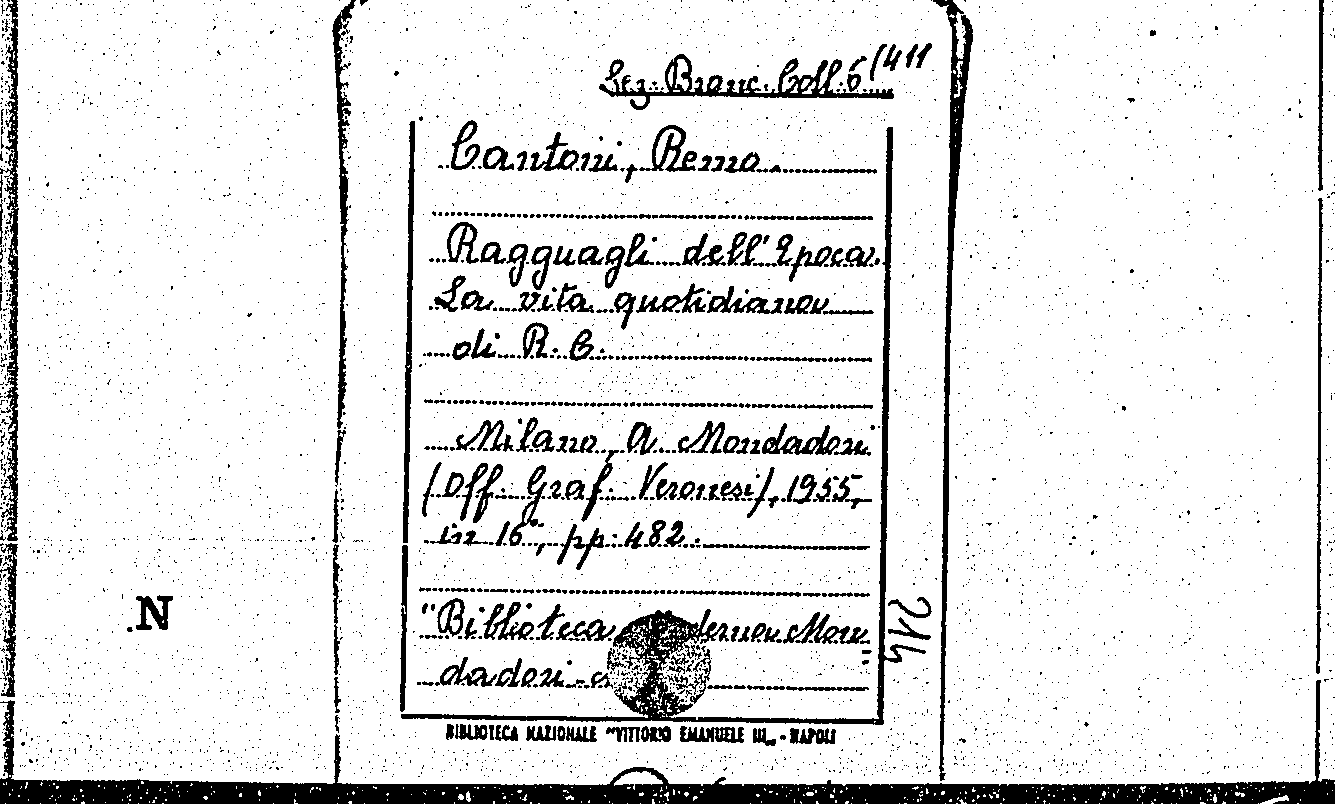 Sez. Branc. Coll. 6 (411
Cantoni, Remo.
Ragguagli dell'Epoca.
La vita quotidiana
di R. C.
Milano, A. Mondadori
(Off. Graf. Veronesi), 1955,
in 16°, pp. 482.
"Biblioteca Mon=
dadori -
214
N
BIBLIOTECA NAZIONALE "VITTORIO EMANUELE III„ - NAPOLI